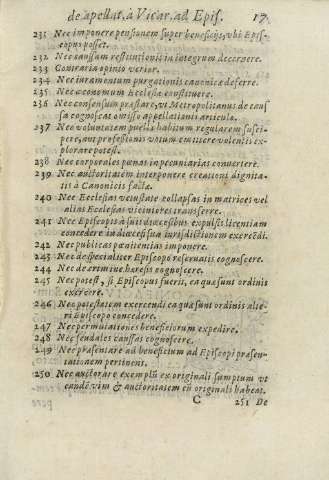 de apellat. à Vicar. ad Epis. 17
231 Nec imponere pensionem super beneficijs, vbi Epis-
copus posset.
232 Nec caussam restitutionis in integrum decernere.
233 Contraria opinio verior.
234 Nec iuramentum purgationis canonicæ deferre.
235 Nec œconomum Ecclesiæ constituere.
236 Nec consensum præstare, vt Metropolitanus de caus
sa cognoscat omisso appellationis articulo.
237 Nec voluntatem puellæ habitum regularem susci-
pere, aut professionis votum emittere volentis ex-
plorare potest.
238 Nec corporales pœnas in pecuniarias conuertere.
239 Nec auctoritatem interponere creationi dignita-
tis à Canonicis factæ.
240 Nec Ecclesias vetustate collapsas in matrices vel
alias Ecclesias viciniores transferre.
241 Nec Episcopis à suis diœcesibus expulsis licentiam
concedere in diœcesi sua iurisdictionem exercẽdi.
242 Nec publicas pœnitentias imponere.
243 Nec de specialiter Episcopo reseruatis cognoscere.
244 Nec de crimine hæresis cognoscere.
245 Nec potest, si Episcopus fuerit, ea quæ sunt ordinis
exercere.
246 Nec potestatem exercendi ea quæ sunt ordinis alte-
ri Episcopo concedere.
247 Nec permutationes beneficiorum expedire.
248 Nec feudales caussas cognoscere.
249 Nec præsentare ad beneficium ad Episcopi præsen-
tationem pertinens.
250 Nec auctorare exemplũ ex originali sumptum vt
eandẽ vim & auctoritatem cũ originali habeat.
C 251 De